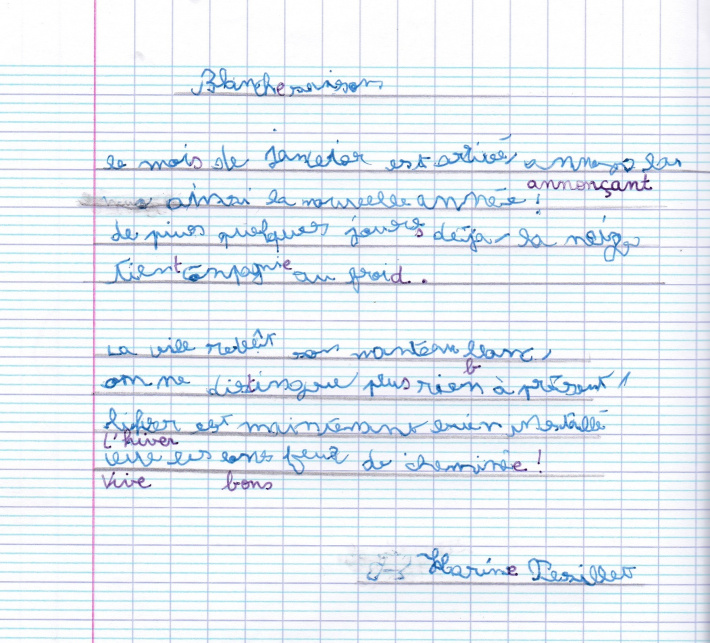 Blanche saison
le mois de Janvier est arrivé,
annonçant
ainsi la nouvelle année !
depuis quelques jours déjà la neige
tient compagnie au froid.
La ville revêt son manteau blanc,
b
on ne distingue plus rien à présent
l'hiver est maintenant bien installé
l'hiver
vive les bons feux de cheminée !
vive bons
Marine